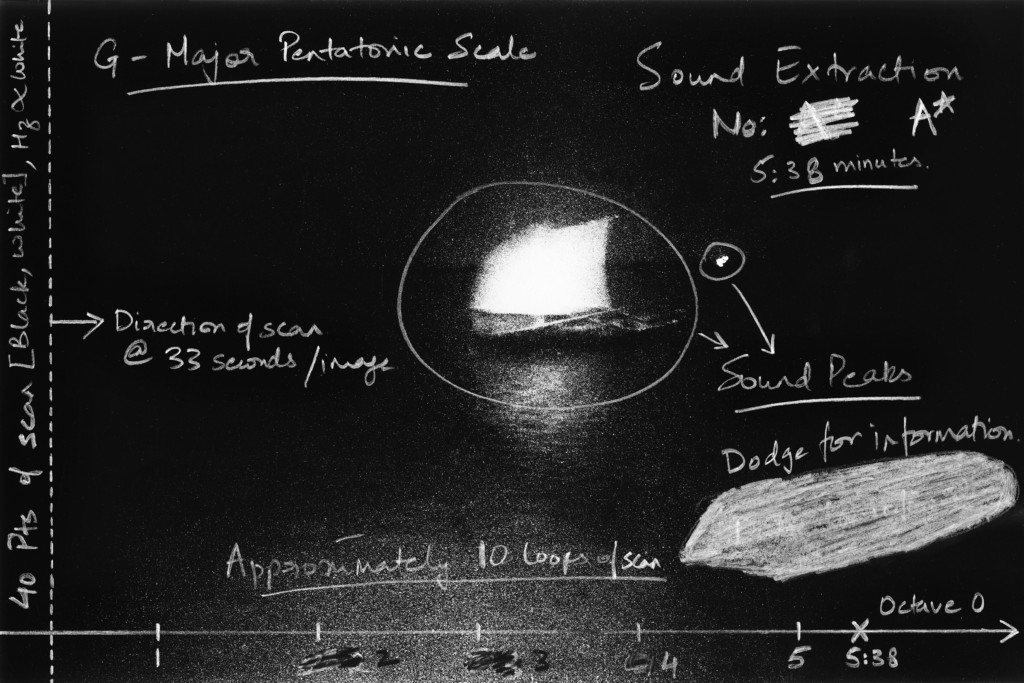 40 Pts of scan [Black, white], Hz ∝ white
G - Major Pentatonic Scale
Sound Extraction
No: A*
5:38 minutes.
Direction of scan
@ 33 seconds/image
Sound Peaks
Dodge for information.
Approximately 10 loops of scan
Octave 0
1 2 3 4 5 5:38